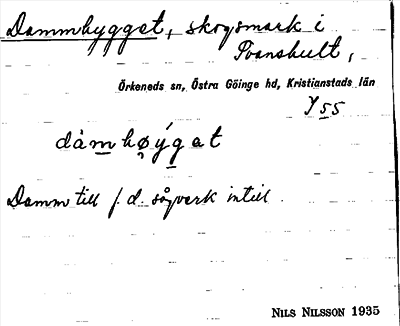 Dammhygget, skogsmark i
Svanshult,
Örkeneds sn, Östra Göinge hd, Kristianstads län
Y 55
dàmhøýgat
Damm till f. d. sågverk intill.
NILS NILSSON 1935